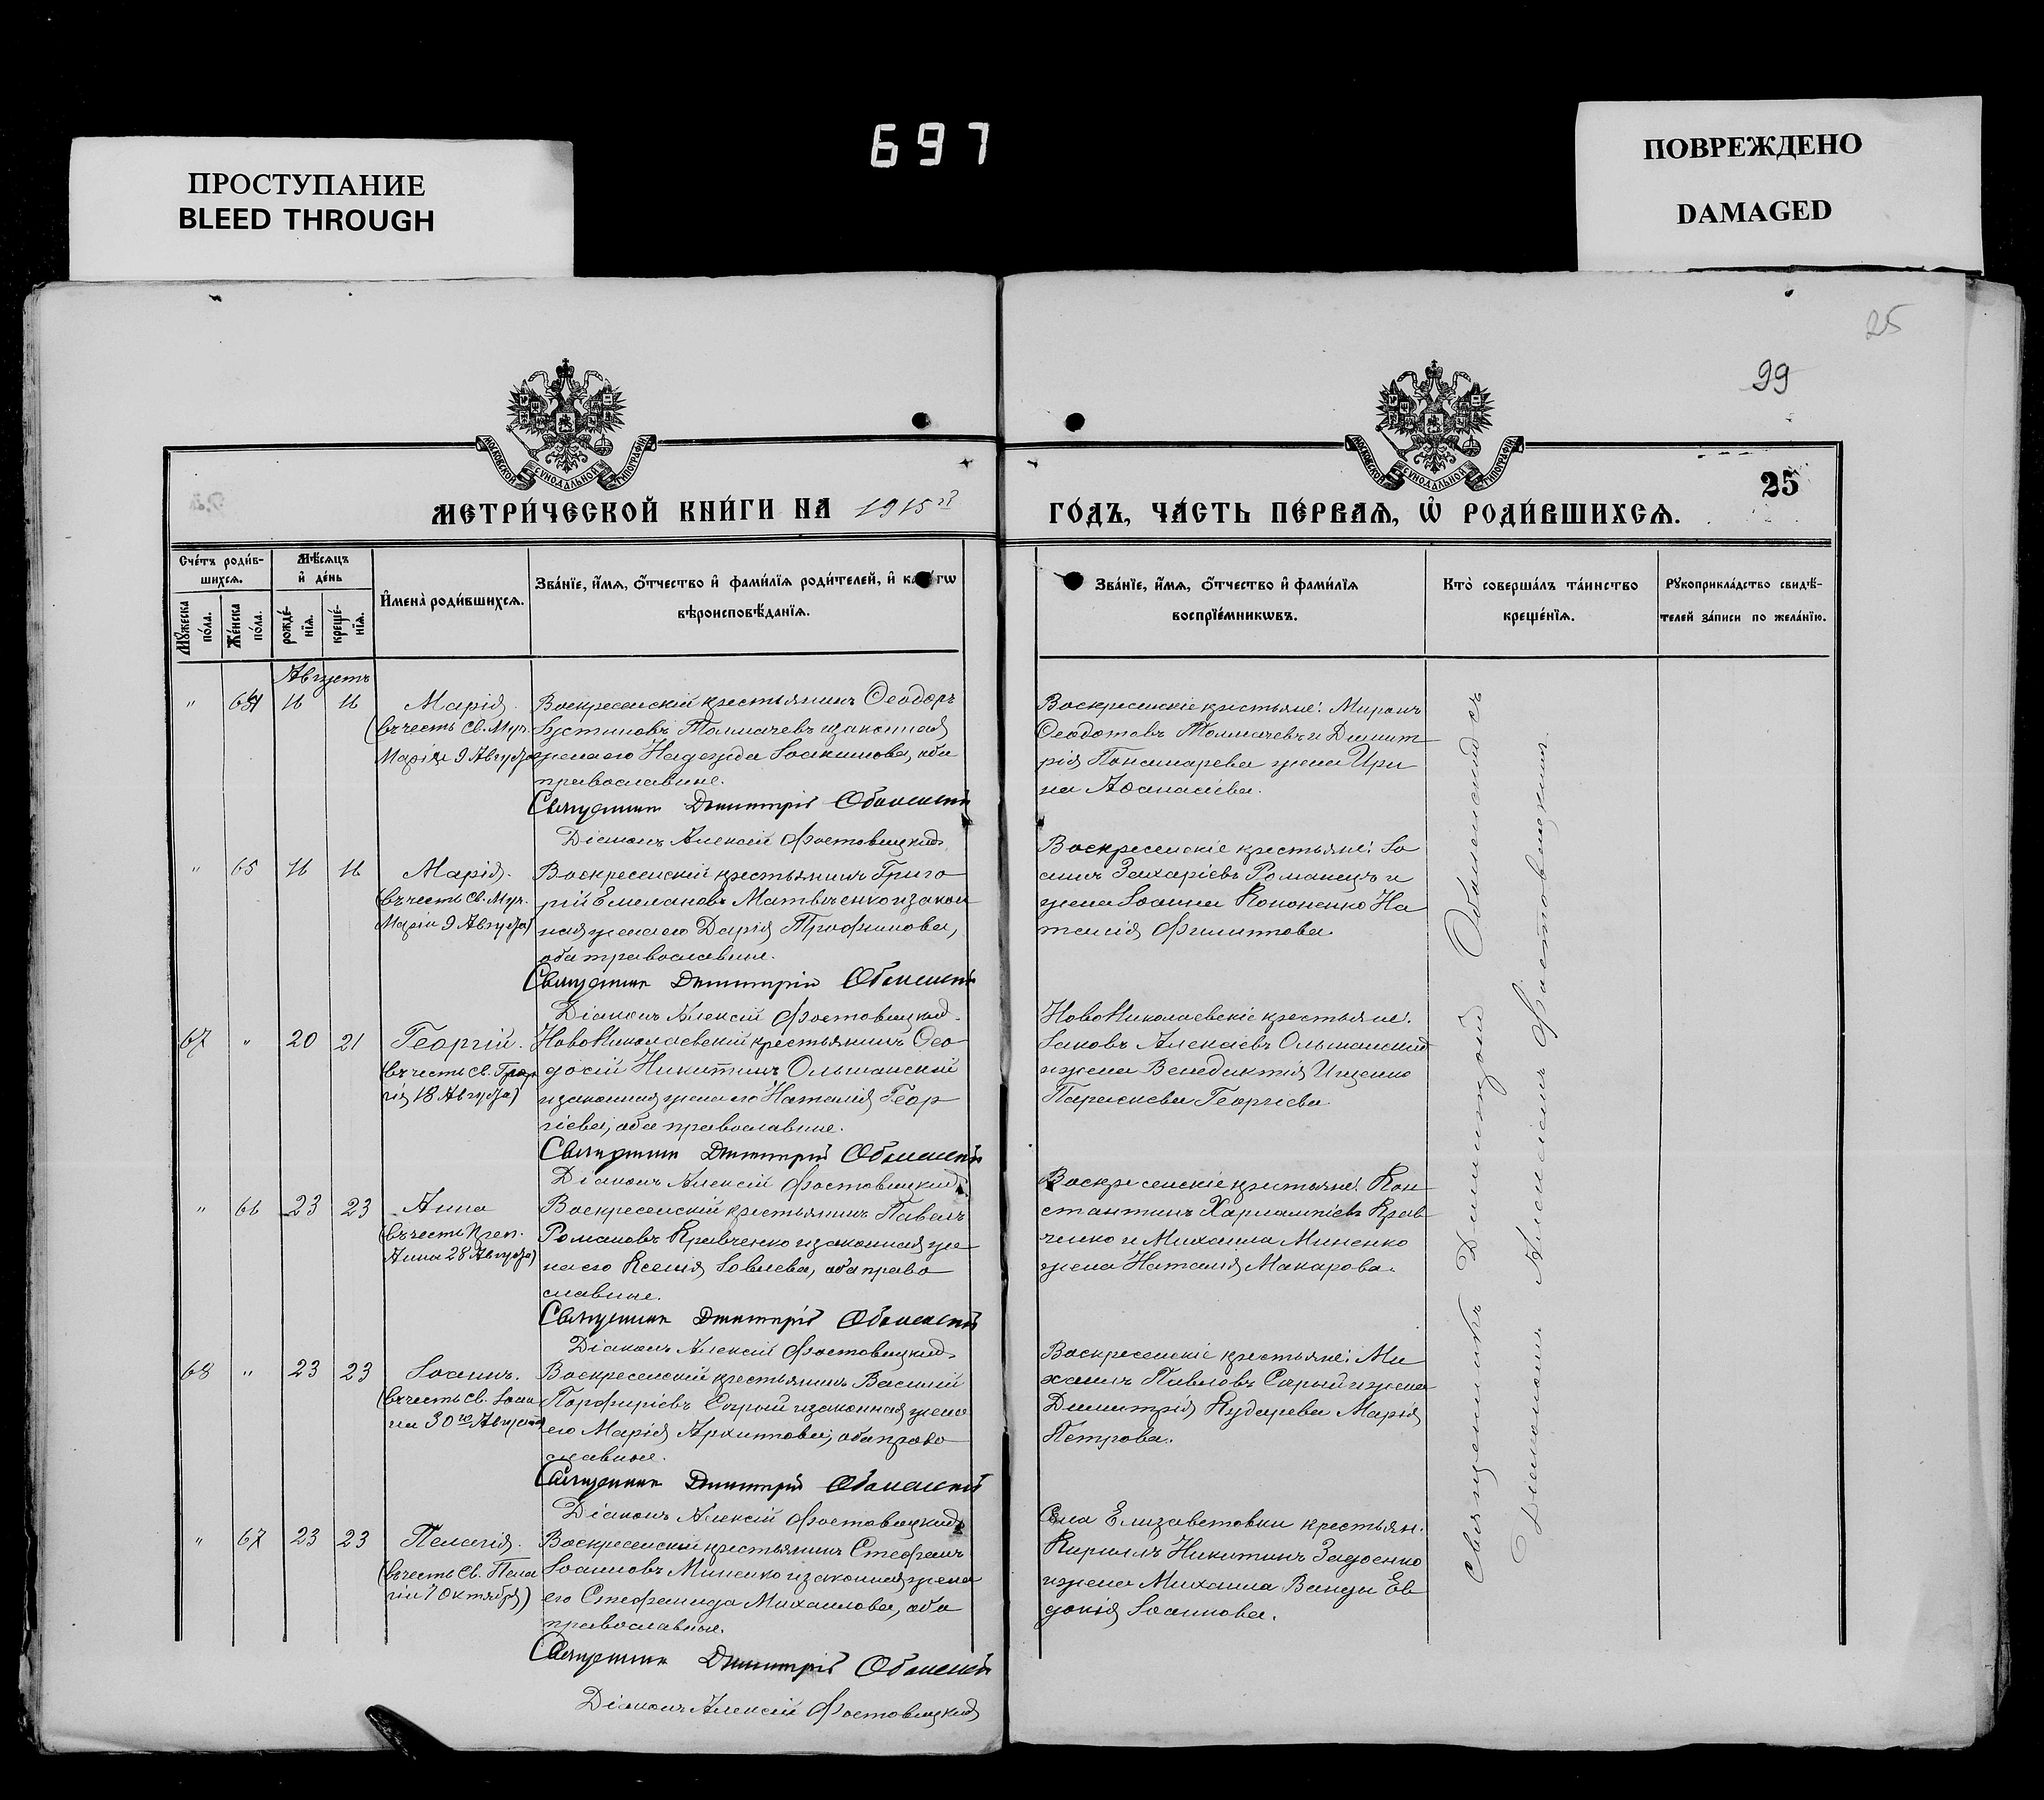 697
ПРОСТУПАНИЕ
BLEED THROUGH
ПОВРЕЖДЕНО
DAMAGED
25
99
25
МОСКОВСКОЙ СУНОДАЛЬНОЙ ТИПОГРАФІИ
МОСКОВСКОЙ СУНОДАЛЬНОЙ ТИПОГРАФІИ
МЕТРИ́ЧЕСКОЙ КНИ́ГИ НА 1915й ГО́ДЪ, ЧА́СТЬ ПЕ́РВАѦ, Ѡ҆ РОДИ́ВШИХСѦ.
Сче́тъ роди́в-
шихсѧ.
Мꙋ́жеска
по́ла.
Же́нска
по́ла.
Мѣ́сѧцъ
и҆ де́нь
рожде́-
нїѧ.
креще́-
нїѧ.
И҆мена̀ роди́вшихсѧ.
Зва́нїе, и҆́мѧ, ѻ҆́тчество и҆ фами́лїѧ роди́телей, и҆ ка гѡ
вѣроисповѣ́данїѧ.
Зва́нїе, и҆́мѧ, ѻ҆́тчество и҆ фами́лїѧ
воспрїе́мникѡвъ.
Кто̀ соверша́лъ та́инство
креще́нїѧ.
Рꙋкоприкла́дство свидѣ́-
телей за́писи по жела́нїю.
Августъ
" 64 16 16
Марія.
(въ честь Св. Муч.
Маріи 9 Августа)
Воскресенскій крестьянинъ Ѳеодоръ
Іустиновъ Толмачевъ и законная
жена его Надежда Іоакимова, оба
православные.
Священникъ Димитрій Оболенскій
Діаконъ Алексій Фостовицкій
Воскресенскіе крестьяне: Миронъ
Ѳеодотовъ Толмачевъ и Димит
рія Пономарева жена Ири
на Аѳанасіева.
" 65 16 16
Марія.
(въ честь Св. Муч.
Маріи 9 Августа)
Воскресенскій крестьянинъ Григо
рій Емеліановъ Матвіенко и закон
ная жена его Дарія Трофимова,
оба православные.
Священникъ Димитрій Оболенскій
Діаконъ Алексій Фостовицкій.
Воскресенскіе крестьяне: Іо
аннъ Захаріевъ Романецъ и
жена Іоанна Кононенко На
талія Филиппова.
67 " 20 21
Георгій.
(въ честь Св. Геор
гія 18 Августа)
НовоНиколаевскій крестьянинъ Ѳео
досій Никитинъ Ольшанскій
и законная жена его Наталія Геор
гіева, оба православные.
Священникъ Димитрій Оболенскій
Діаконъ Алексій Фостовицкій
НовоНиколаевскіе крестьяне:
Іаковъ Алексіевъ Ольшанскій
и жена Венедиктія Ищенко
Параскева Георгіева.
" 66 23 23
Анна
(въ честь Преп.
Анны 28 Августа)
Воскресенскій крестьянинъ Павелъ
Романовъ Кравченко и законная же
на его Ксенія Іовлева, оба право
славные.
Священникъ Димитрій Оболенскій
Діаконъ Алексій Фостовицкій.
Воскресенскіе крестьяне: Кон
стантинъ Харлампіевъ Крав
ченко и Михаила Миненко
жена Наталія Макарова.
68 " 23 23
Іоаннъ.
(въ честь Св. Іоан
на 30го Августа)
Воскресенскій крестьянинъ Василій
Порфиріевъ Сѣрый и законная жена
его Марія Архиппова, оба право
славные.
Священникъ Димитрій Оболенскій
Діаконъ Алексій Фостовицкій
Воскресенскіе крестьяне: Ми
хаилъ Павловъ Сѣрый и жена
Димитрія Кударева Марія
Петрова.
" 67 23 23
Пелагія.
(въ честь Св. Пела
гіи 7 Октября)
Воскресенскій крестьянинъ Стефанъ
Іоанновъ Миненко и законная жена
его Стефанида Михаилова, оба
православные.
Священникъ Димитрій Оболенскій
Діаконъ Алексій Фостовицкій
Села Елизаветовки крестьян.
Кириллъ Никитинъ Задоенко
и жена Михаила Ванды Ев
докія Іоаннова.
Священникъ Димитрій Оболенскій съ
Діакономъ Алексіемъ Фостовицкимъ.